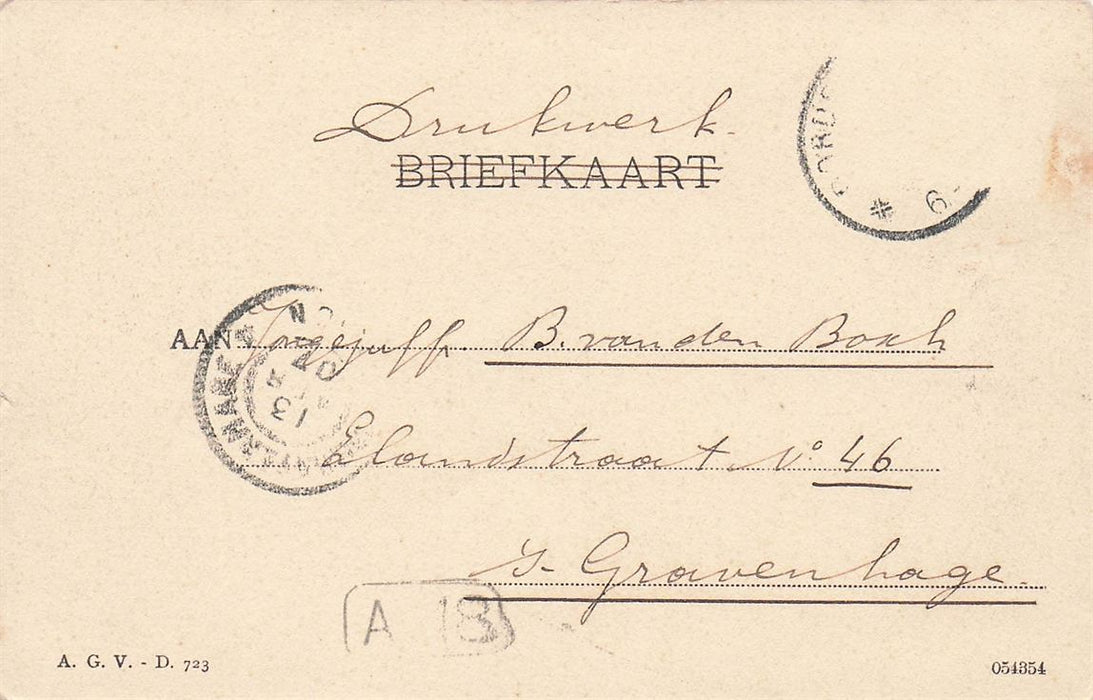 Drukwerk.
BRIEFKAART
AAN Mejuff. B. van den Bosch
Elandstraat No 46
's-Gravenhage.
13
A 18
A. G. V. - D. 723
054354